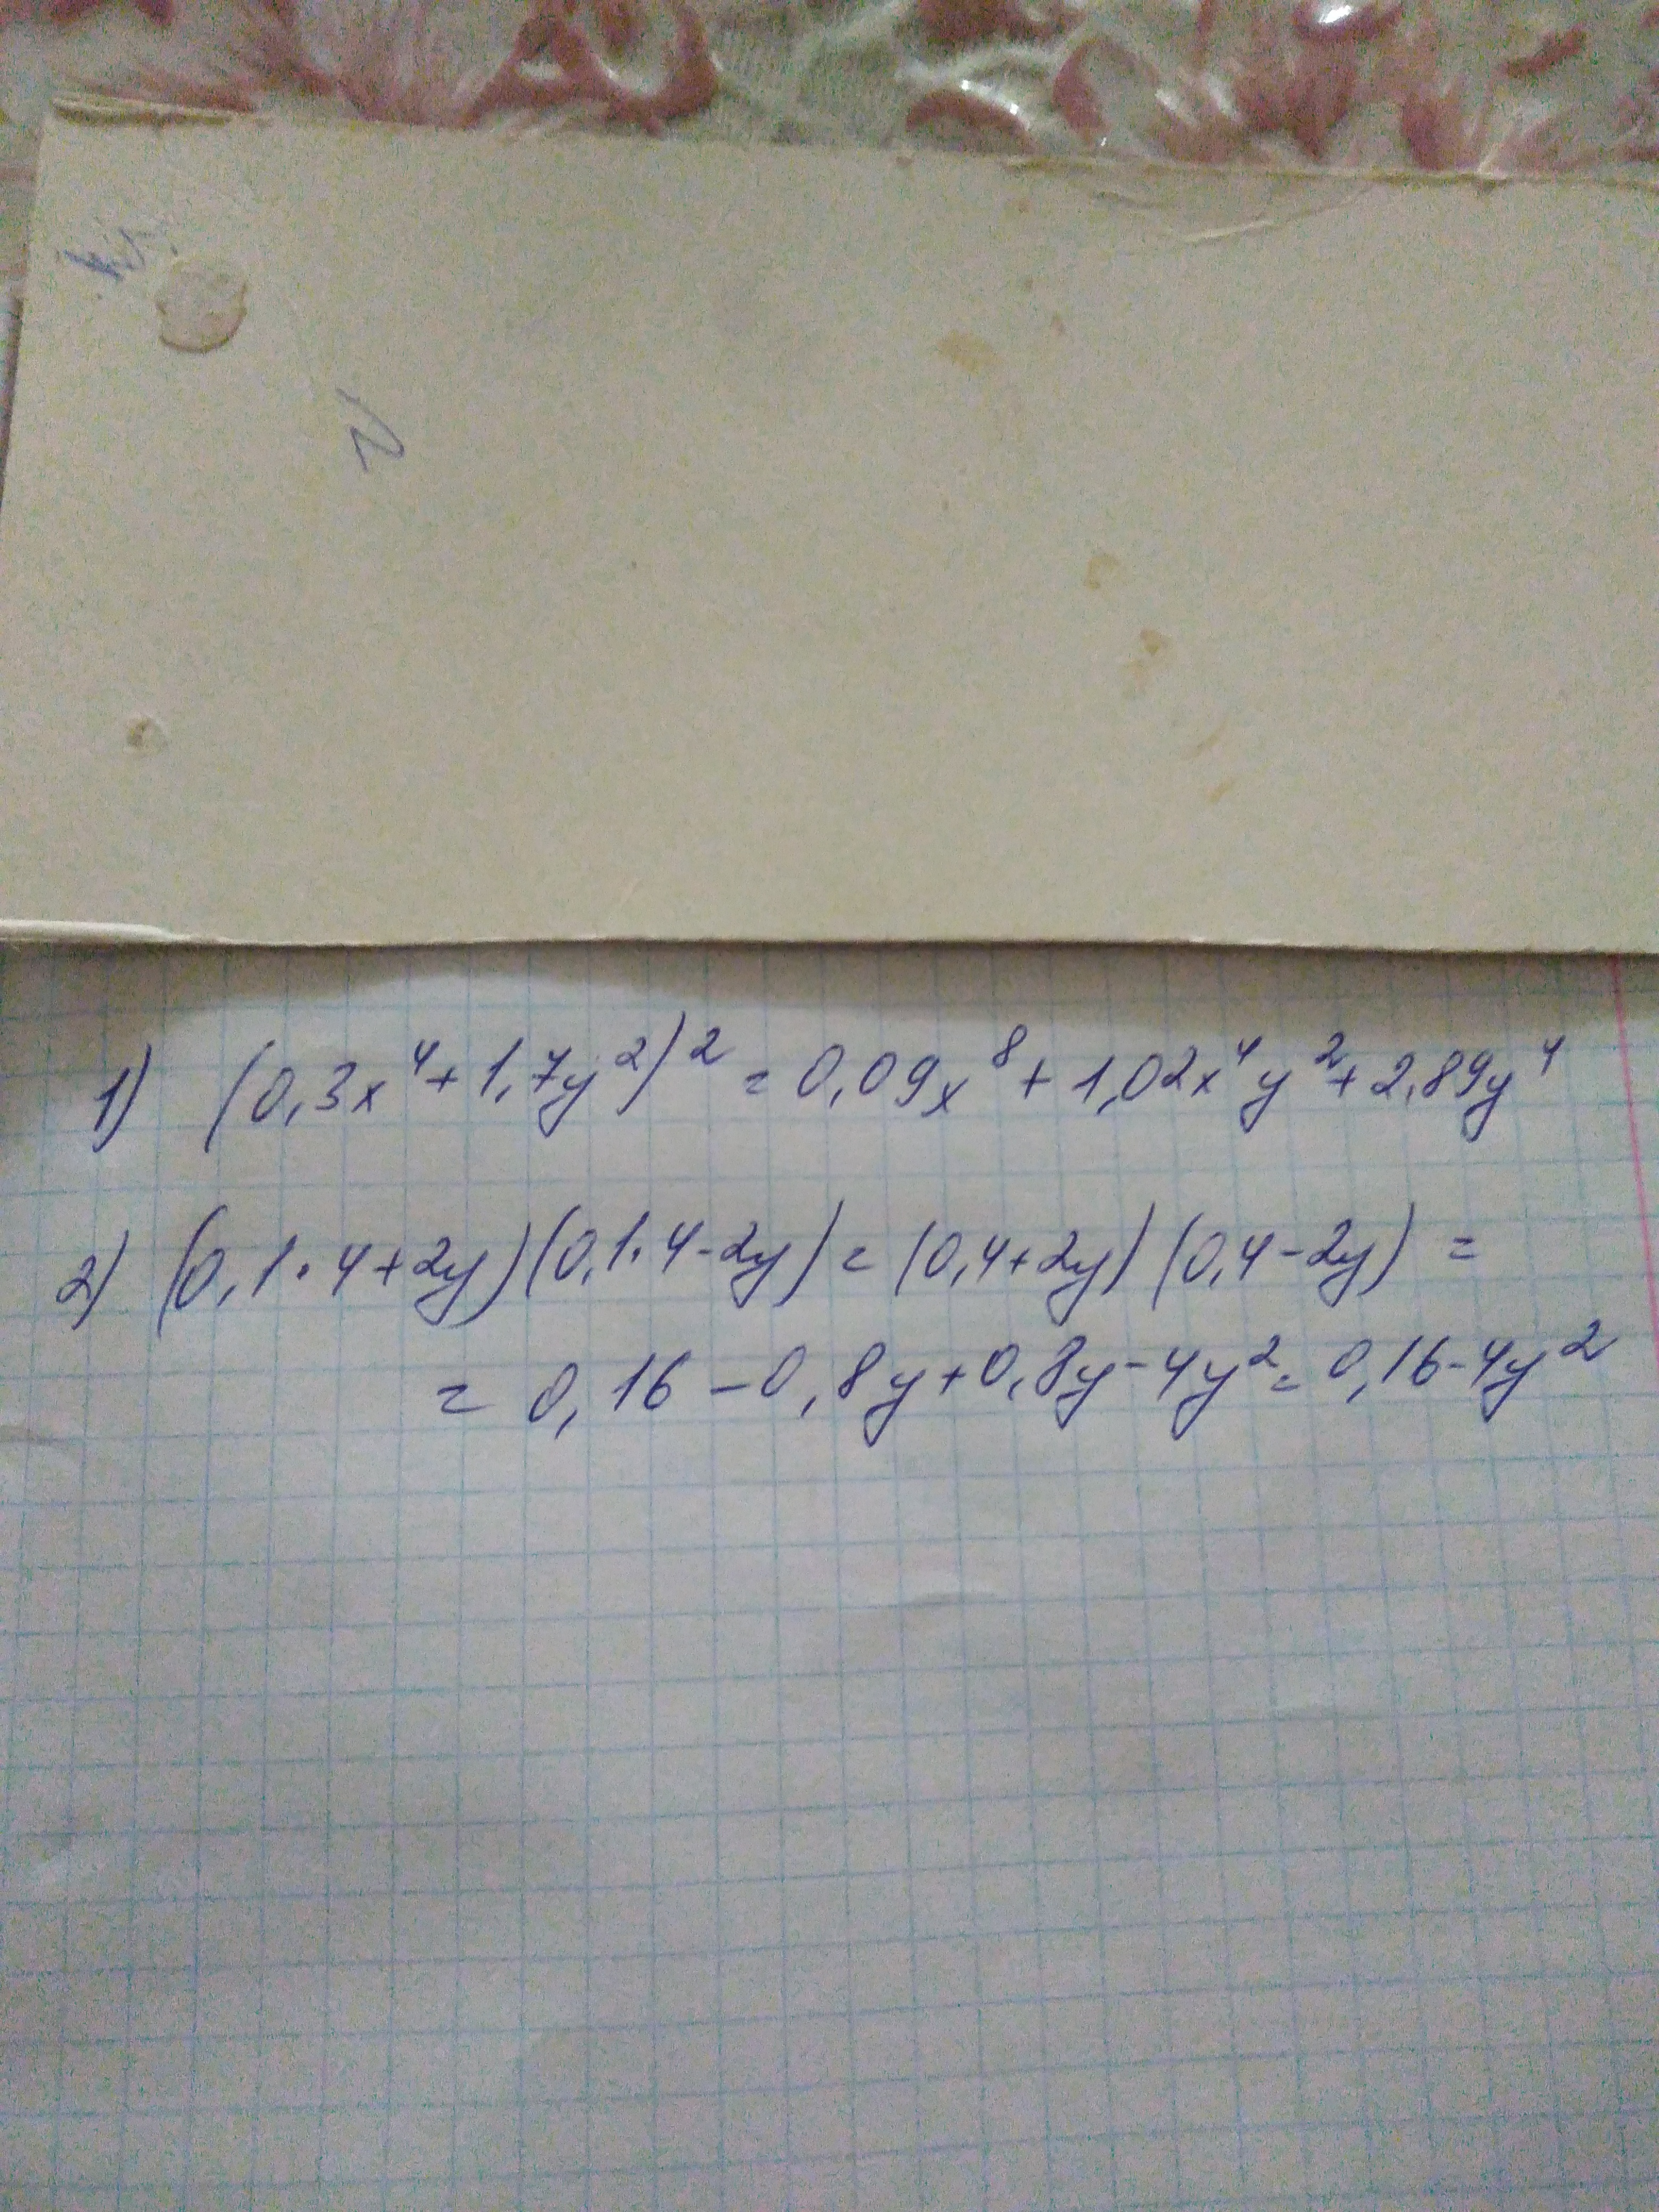 1) (0,3x⁴+1,7y²)² = 0,09x⁸ + 1,02x⁴y² + 2,89y⁴
2) (0,1·4+2y)(0,1·4-2y) = (0,4+2y)(0,4-2y) =
= 0,16 - 0,8y + 0,8y - 4y² = 0,16 - 4y²